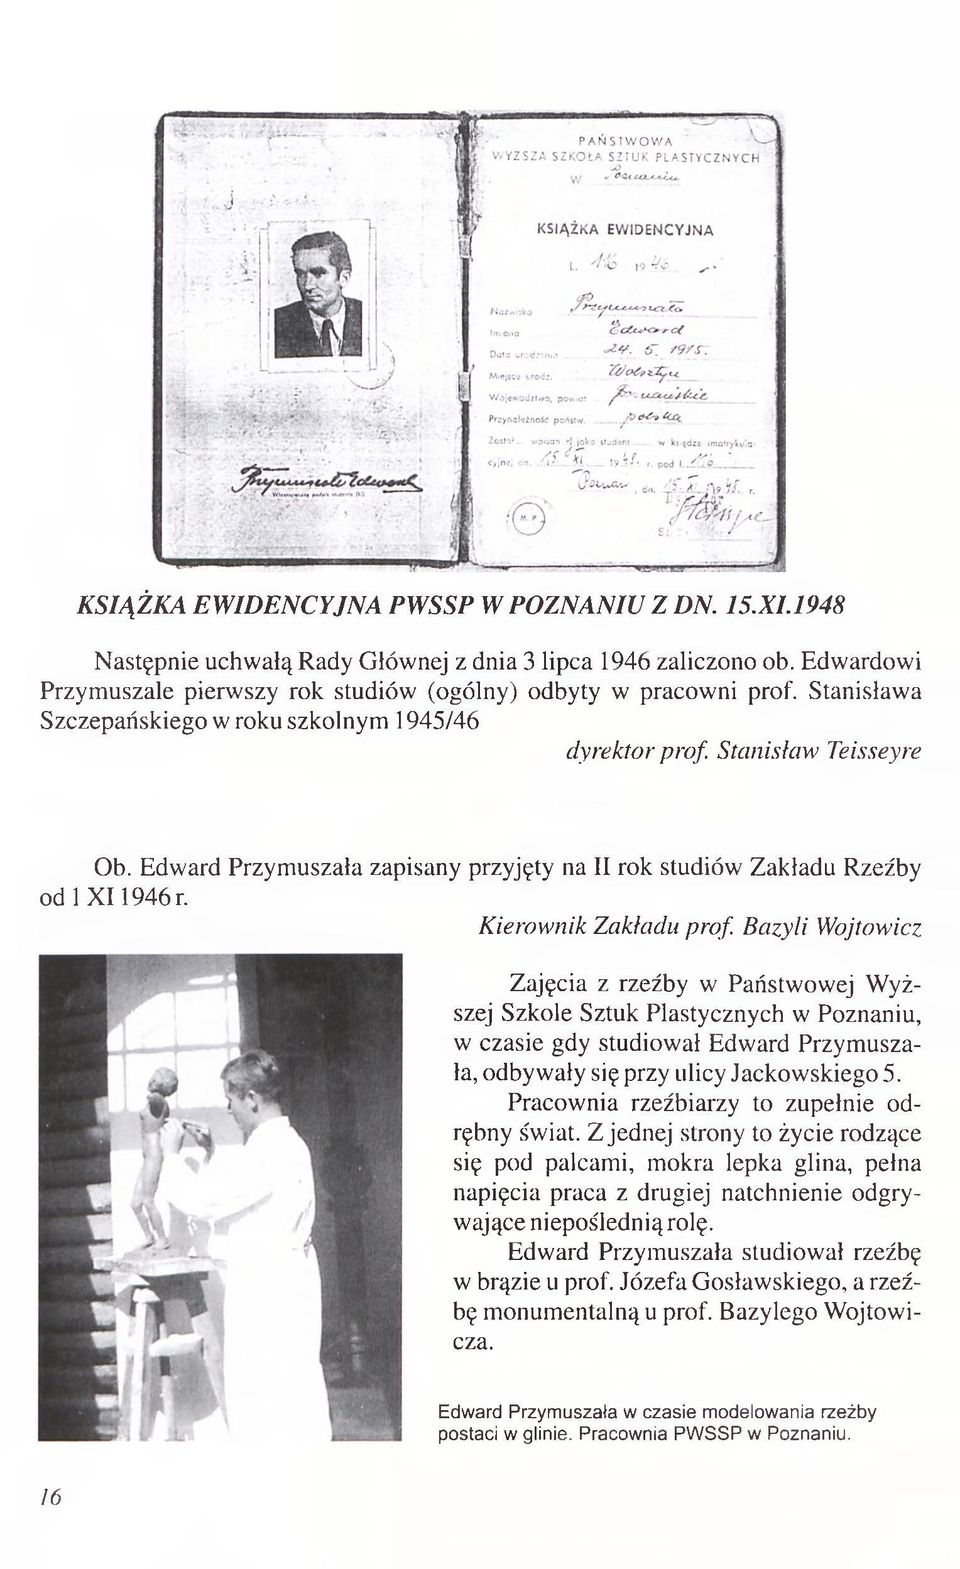 PAŃSTWOWA
WYŻSZA SZKOŁA SZTUK PLASTYCZNYCH
W Poznaniu
KSIĄŻKA EWIDENCYJNA
L. 116 19 46
Nazwisko Przymuszała
Imiona Edward
Data urodzenia 24. 5. 1915.
Miejsce urodz. Wolsztyn
Województwo, powiat Poznańskie
Przynależność państw. polska
Został wpisan y jako student w księdze imatrykula-
cyjnej dn. 15 XI 1948. r. pod l.
Poznań, dn. 15. X 1948. r.
M. P.
Przymuszała Edward
Własnoręczny podpis studenta (ki)
KSIĄŻKA EWIDENCYJNA PWSSP W POZNANIU Z DN. 15.XI.1948
Następnie uchwałą Rady Głównej z dnia 3 lipca 1946 zaliczono ob. Edwardowi
Przymuszale pierwszy rok studiów (ogólny) odbyty w pracowni prof. Stanisława
Szczepańskiego w roku szkolnym 1945/46
dyrektor prof. Stanisław Teisseyre
Ob. Edward Przymuszała zapisany przyjęty na II rok studiów Zakładu Rzeźby
od 1 XI 1946 r.
Kierownik Zakładu prof. Bazyli Wojtowicz
Zajęcia z rzeźby w Państwowej Wyż-
szej Szkole Sztuk Plastycznych w Poznaniu,
w czasie gdy studiował Edward Przymusza-
ła, odbywały się przy ulicy Jackowskiego 5.
Pracownia rzeźbiarzy to zupełnie od-
rębny świat. Z jednej strony to życie rodzące
się pod palcami, mokra lepka glina, pełna
napięcia praca z drugiej natchnienie odgry-
wające niepoślednią rolę.
Edward Przymuszała studiował rzeźbę
w brązie u prof. Józefa Gosławskiego, a rzeź-
bę monumentalną u prof. Bazylego Wojtowi-
cza.
Edward Przymuszała w czasie modelowania rzeźby
postaci w glinie. Pracownia PWSSP w Poznaniu.
16